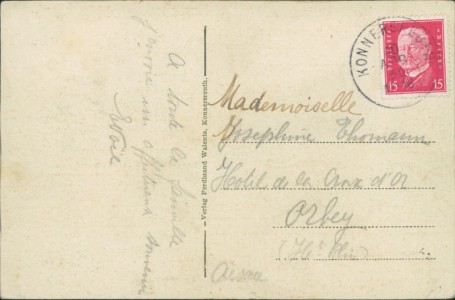 A toute la famille
j'envoie un affectueux souvenir
— Verlag Ferdinand Walente, Konnersreuth.
KONNERS
15 15
Mademoiselle
Josephine Thomann
Hotel de la Croix d'Or
Orbey
(Ht Rhin)
Alsace